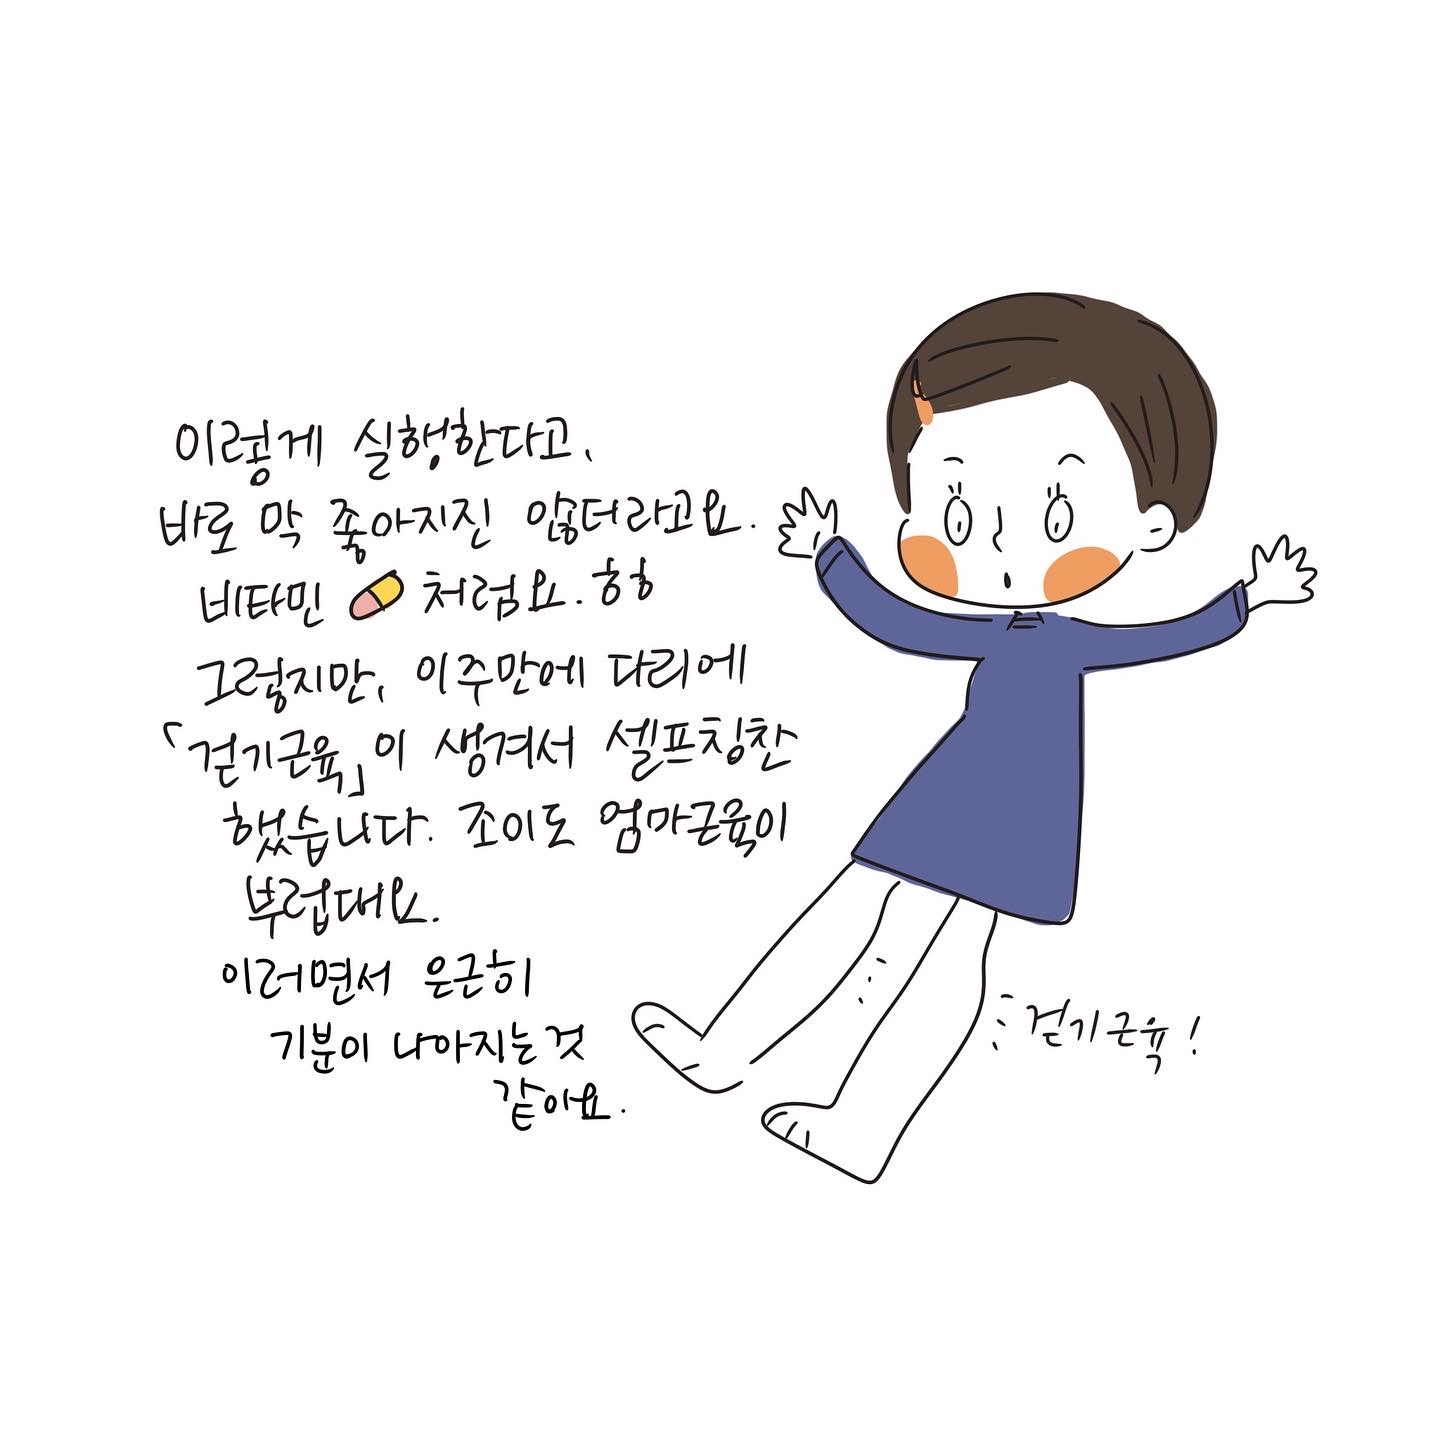 이렇게 실행한다고,
바로 막 좋아지진 않더라고요.
비타민 처럼요. 헝
그렇지만, 이주만에 다리에
「걷기근육」이 생겨서 셀프칭찬
했습니다. 조이도 엄마근육이
부럽대요.
이러면서 은근히
기분이 나아지는 것
같아요.
걷기근육!